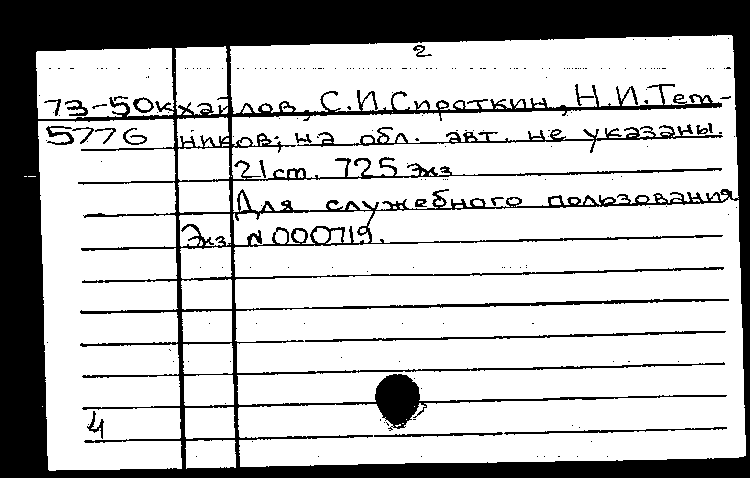 2
73-50к хайлов, С.И.Сироткин, Н.И.Тет-
5776 ников; на обл. авт. не указаны.
21 ст. 725 экз
Для служебного пользования
Экз N 000719.
4